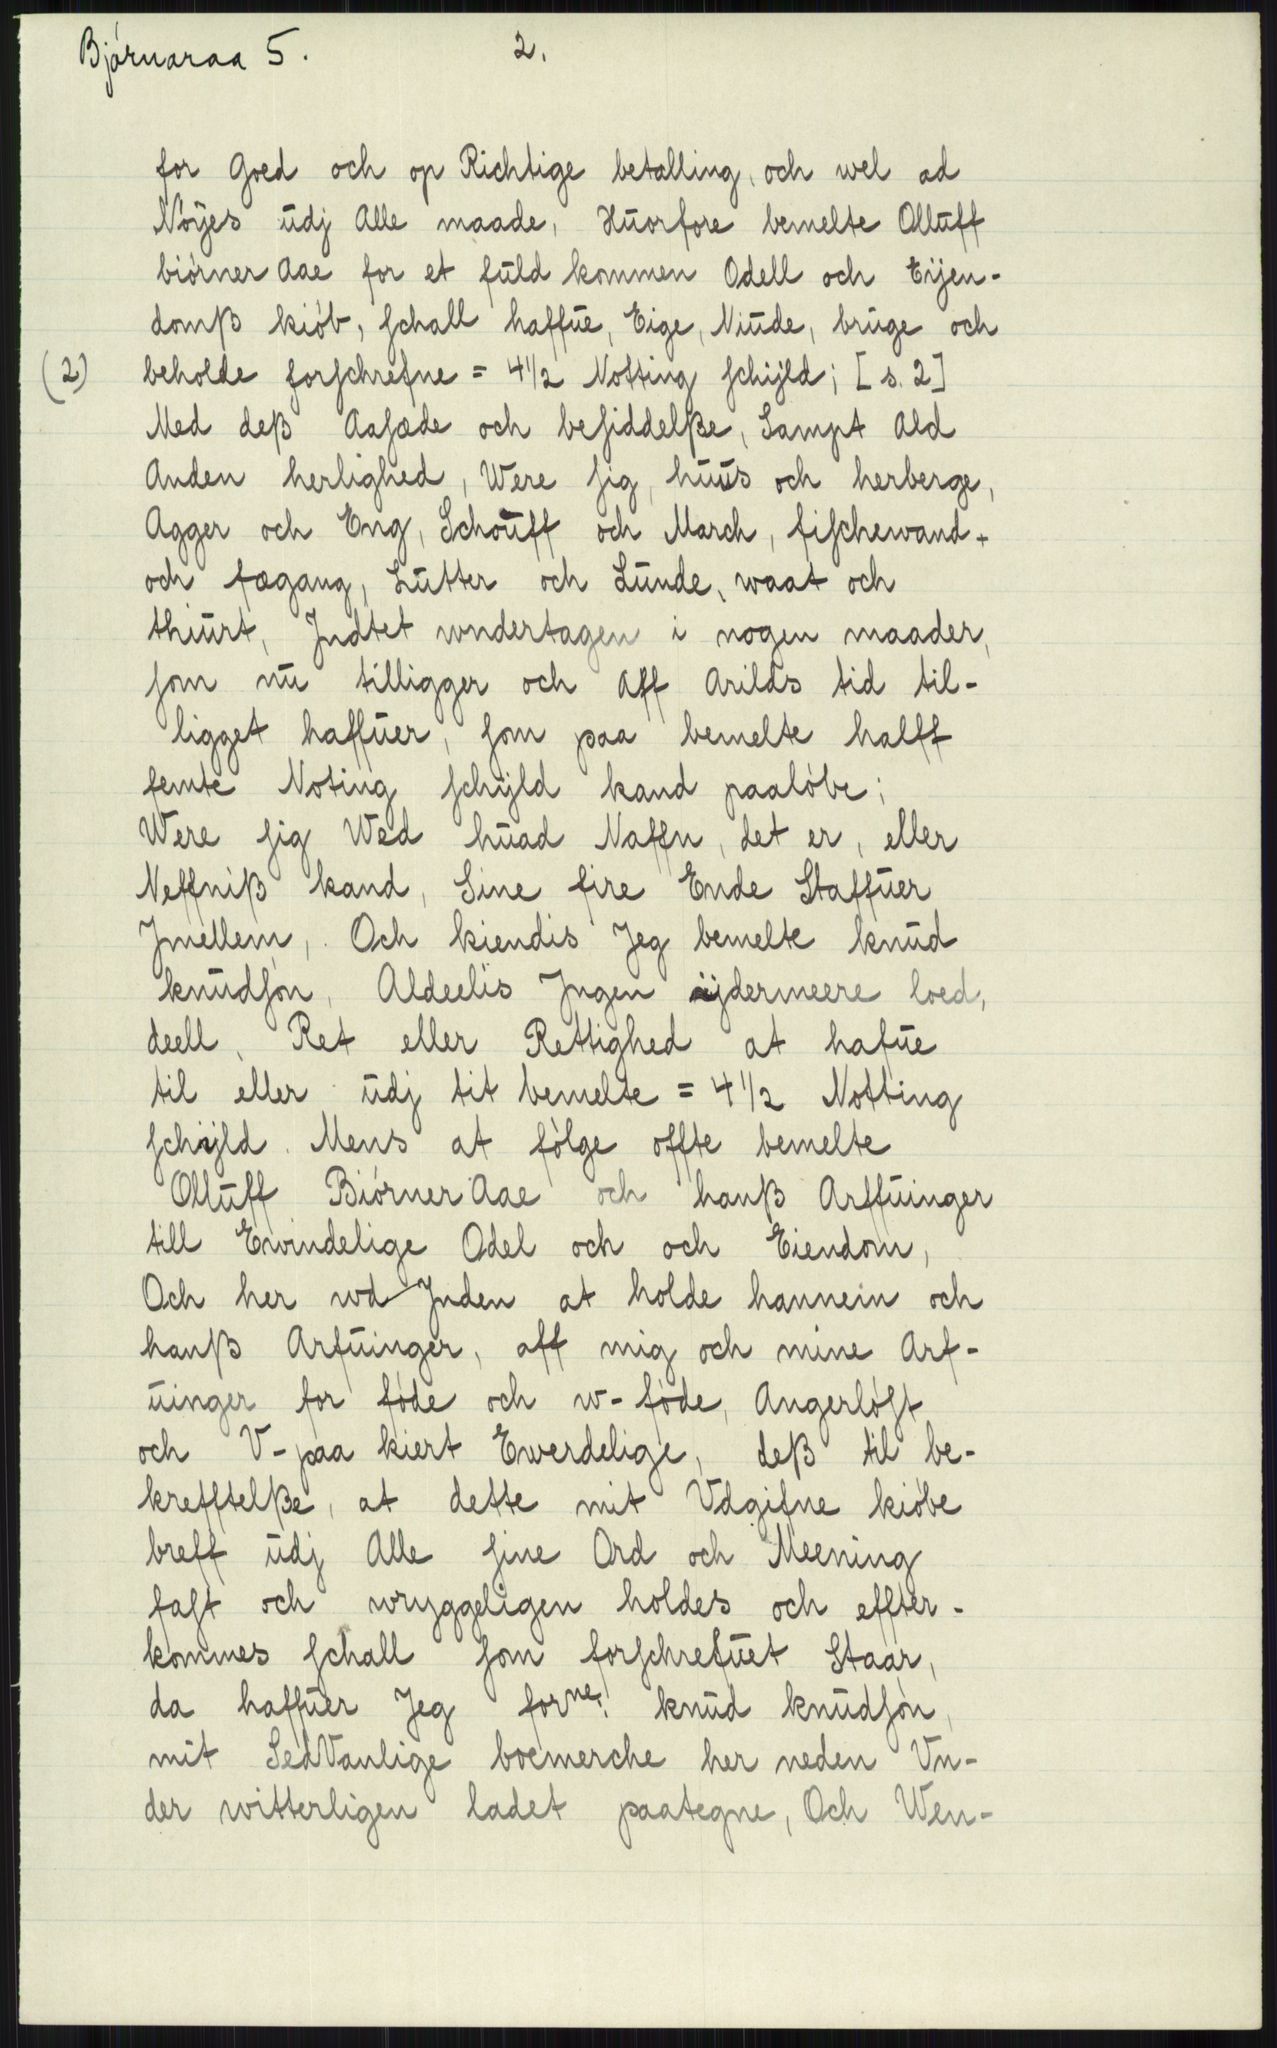 Bjórnaraa 5. 2.
for Goed och op Richtige betalling, och wel ad
Nóÿes ŭdj Alle maade, Hŭorfore bemelte Ollŭff
biórner Aae for et fŭld kommen Odell och Eÿen-
domß kiób, schall haffŭe, Eige, Niŭde, brŭge och
(2) beholde forschrefne = 4 1/2 Notting schijld; [s. 2]
Med deß Aasæde och besiddelße, Sampt Ald
Anden herlighed, Were sig, hŭŭs och herberge,
Agger och Eng, Schoŭff och March, fischewand-
och fægang, Lŭtter och Lŭnde, waat och
thiŭrt, Jndtet wndertagen i nogen maader,
som nŭ tilligger och Aff Arilds tid til-
ligget haffŭer, som paa bemelte halff
femte Noting schijld kand paalóbe;
Were sig Wed hŭad Naffn, det er, eller
Neffniß kand, Sine fire Ende Staffŭer
Jmellem, Och kiendis Jeg bemelte knŭd
knŭdsón, Aldeelis Jngen ijdermeere loed,
deell, Ret eller Rettighed at hafŭe
til eller ŭdj tit bemelte = 4 1/2 Notting
schijld. Mens at fólge offte bemelte
Ollŭff Biórner Aae och hanß Arffŭinger
till Ewindelige Odel och och Eiendom,
Och her wd Jnden at holde hannem och
hanß Arfŭinger, aff mig och mine Arf-
ŭinger for fóde och w-fóde, Angerlóst
och V-paa kiert Ewerdelige, deß til be-
krefftelße, at dette mit Vdgifne kióbe
breff ŭdj Alle sine Ord och Meening
fast och wryggeligen holdes och effter-
kommes schall som forschrefŭet Staar,
da haffŭer Jeg forne: knŭd knŭdsón,
mit SedVanlige boemerche her neden Vn-
der witterligen ladet paategne, Och Wen-